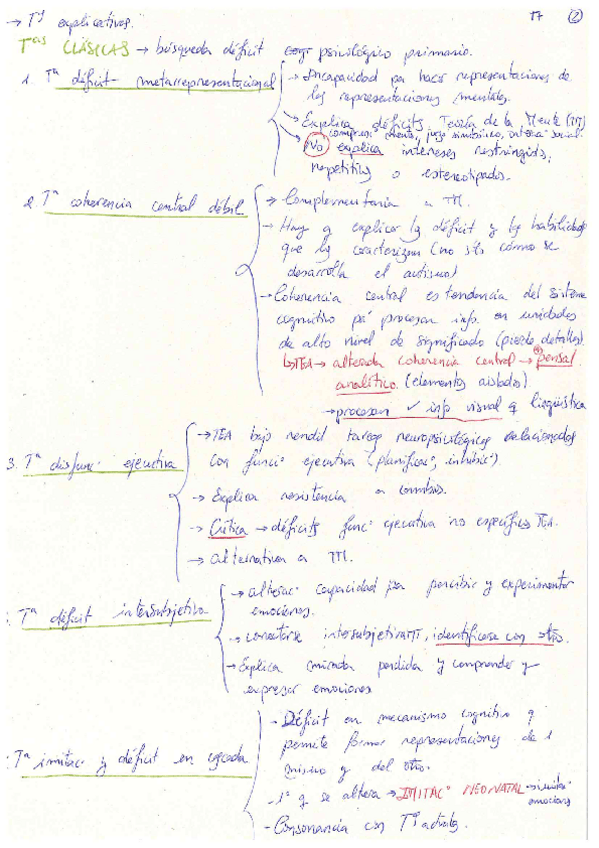 → Tª explicativas. T7 ②
Tªs CLÁSICAS → búsqueda déficit cogn psicológico primario.
1. Tª déficit metarrepresentacional
→ Incapacidad para hacer representaciones de
las representaciones mentales.
→ Explica déficits Teoría de la Mente (TM)
comprens. mente, juego simbólico, interac. social
→ NO explica intereses restringidos,
repetitivos o estereotipados.
2. Tª coherencia central débil
→ Complementaria a TM.
→ Hay q explicar ls déficit y ls habilidades
que ls caracterizan (no sólo cómo se
desarrolla el autismo)
→ Coherencia central es tendencia del sistema
cognitivo pa procesar info en unidades
de alto nivel de significado (pierde detalles).
↳ TEA → alterada coherencia central → pensal.
analítico. (elementos aislados)
→ procesan ✓ info visual q lingüística
3. Tª disfunc. ejecutiva
→ TEA bajo rendil tareas neuropsicológicas relacionadas
con funcⁱᵒ ejecutiva (planificac., inhibic.).
→ Explica resistencia a cambios.
→ Crítica → déficits funcⁱᵒ ejecutiva no específicos TEA.
→ alternativa a TM.
Tª déficit intersubjetivo
→ alterac. capacidad pa percibir y experimentar
emociones.
→ conectarse intersubjetivamT, identificarse con otro.
→ Explica mirada perdida y comprender y
expresar emociones
Tª imitac. y déficit en
- Déficit en mecanismo cognitivo q
permite formar representaciones de 1
mismo y del otro.
- 1º q se altera → IMITACº NEONATAL → imitar
emociones
- Consonancia con Tª actuales.